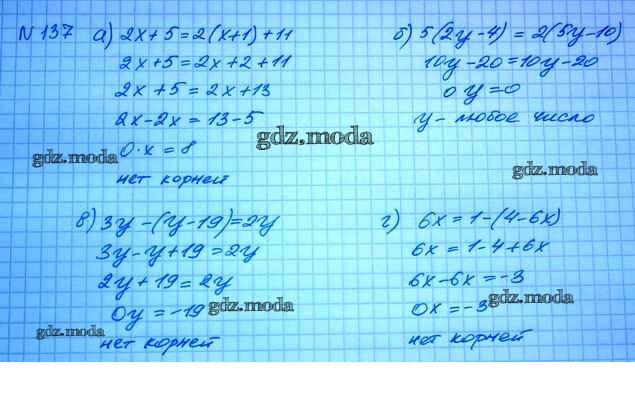 N 137 а) 2x + 5 = 2(x+1) + 11
2x+5 = 2x + 2 + 11
2x + 5 = 2x + 13
2x - 2x = 13 - 5
0 · x = 8
нет корней
б) 5(2y-4) = 2(5y-10)
10y - 20 = 10y - 20
0 y = 0
y - любое число
в) 3y - (y - 19) = 2y
3y - y + 19 = 2y
2y + 19 = 2y
0y = -19
нет корней
г) 6x = 1 - (4 - 6x)
6x = 1 - 4 + 6x
6x - 6x = -3
0x = -3
нет корней
gdz.moda
gdz.moda
gdz.moda
gdz.moda
gdz.moda
gdz.moda
gdz.moda